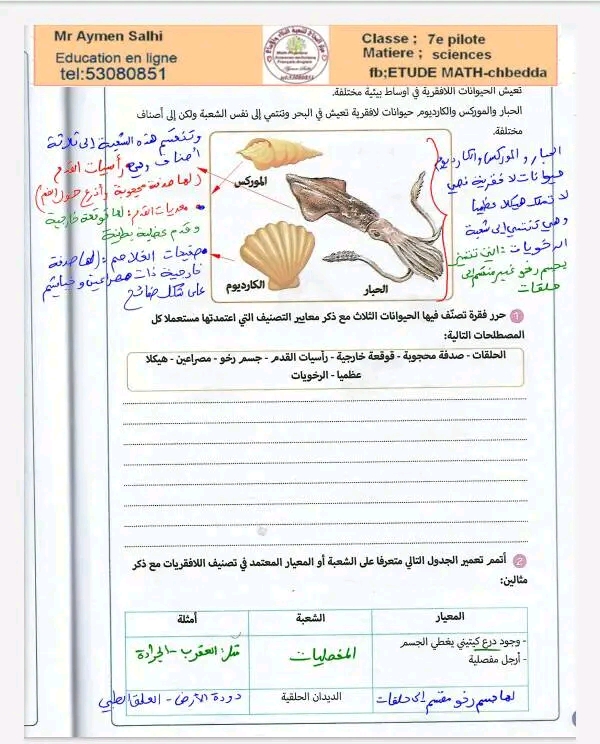 Mr Aymen Salhi
Education en ligne
tel:53080851
Classe ; 7e pilote
Matiere ; sciences
fb;ETUDE MATH-chbedda
تعيش الحيوانات اللافقرية في أوساط بيئية مختلفة.
الحبار والموركس والكارديوم حيوانات لافقرية تعيش في البحر وتنتمي إلى نفس الشعبة ولكن إلى أصناف
مختلفة.
الحبار و الموركس و الكارديوم
حيوانات لا فقرية فهي
لا تمتلك هيكلا عظميا
وهي تنتمي إلى شعبة
الرخويات: التي تتميز
بجسم رخو غير منقسم إلى
حلقات
وتنقسم هذه الشعبة إلى ثلاثة
أصناف وهي رأسيات القدم
(لها صدفة محجوبة وأذرع حول الفم)
معديات القدم: لها قوقعة خارجية
و قدم عضلية بطنية
صفيحيات الغلاصم: (لها صدفة
خارجية ذات مصراعين و خياشيم
على شكل صفائح
الموركس
الكارديوم
الحبار
1 حرر فقرة تصنّف فيها الحيوانات الثلاث مع ذكر معايير التصنيف التي اعتمدتها مستعملا كل
المصطلحات التالية:
الحلقات - صدفة محجوبة - قوقعة خارجية - رأسيات القدم - جسم رخو - مصراعين - هيكلا
عظميا - الرخويات
2 أتمم تعمير الجدول التالي متعرفا على الشعبة أو المعيار المعتمد في تصنيف اللافقريات مع ذكر
مثالين:
المعيار الشعبة أمثلة
- وجود درع كيتيني يغطي الجسم
- أرجل مفصلية
المفصليات
مثل: العقرب - الجرادة
لها جسم رخو مقسم إلى حلقات
الديدان الحلقية
دودة الأرض - العلق الطبي